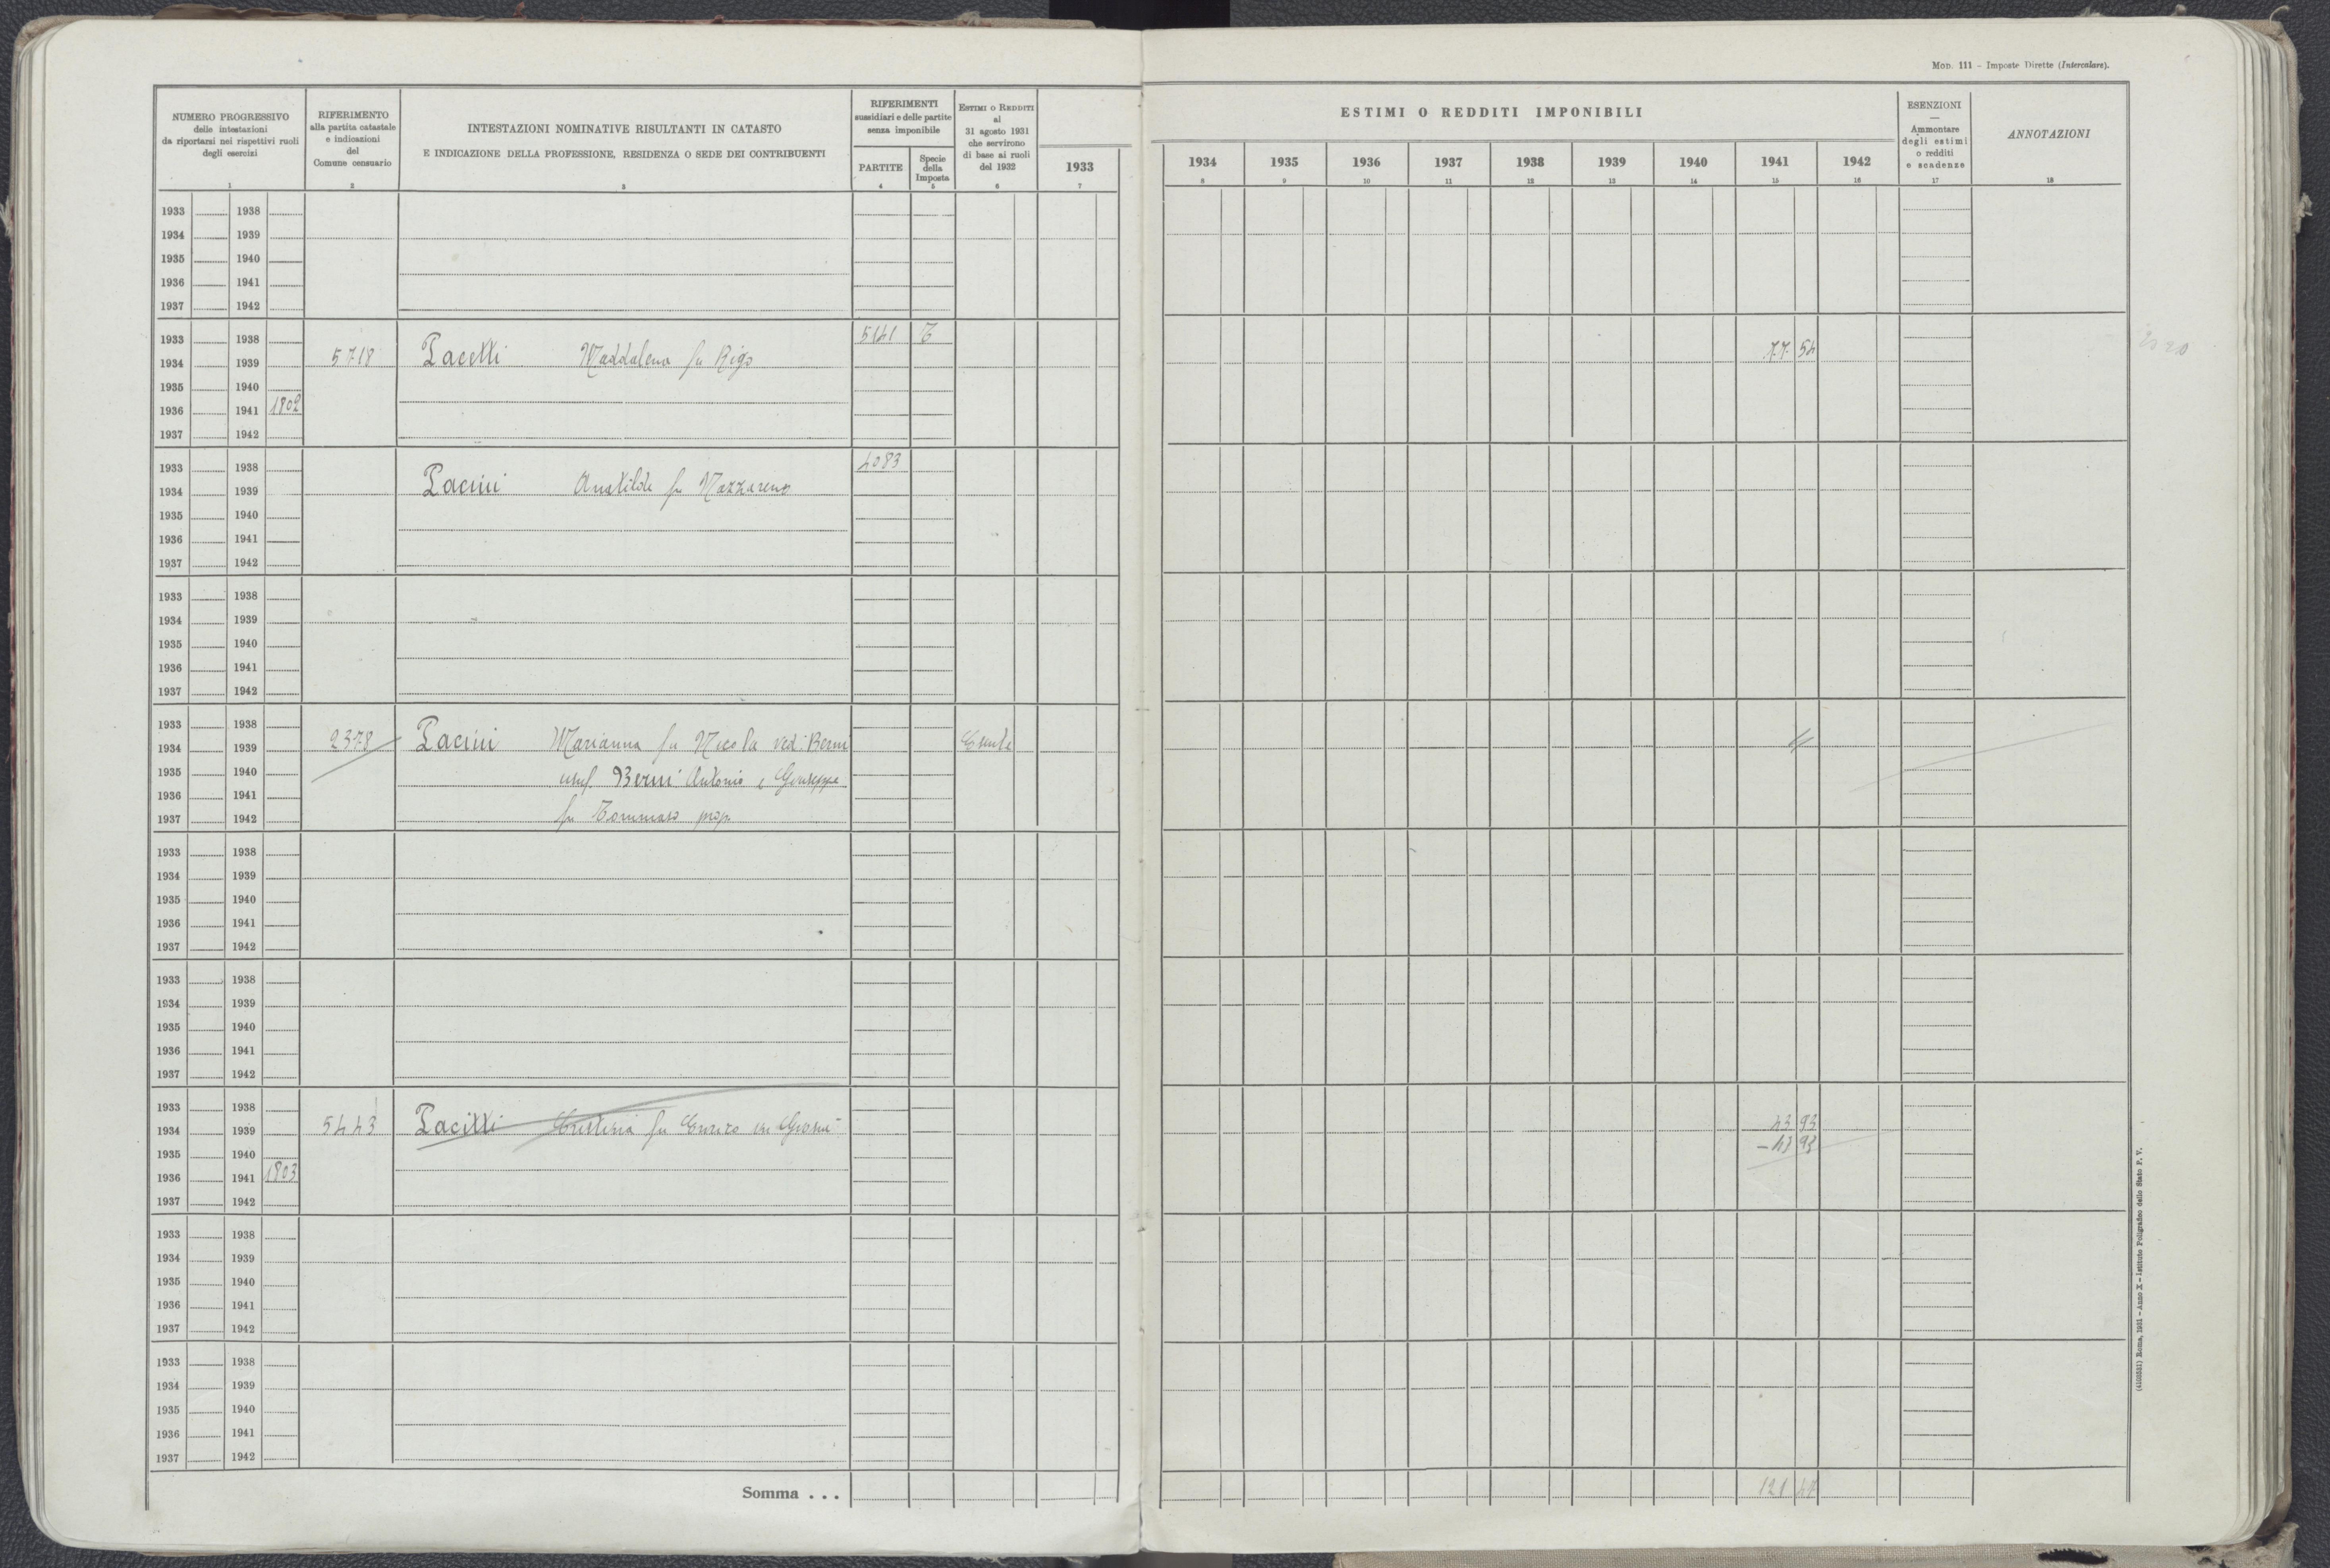 Mod. 111 - Imposte Dirette (Intercalare).
NUMERO PROGRESSIVO
delle intestazioni
da riportarsi nei rispettivi ruoli
degli esercizi
1
RIFERIMENTO
alla partita catastale
e indicazioni
del
Comune censuario
2
INTESTAZIONI NOMINATIVE RISULTANTI IN CATASTO
E INDICAZIONE DELLA PROFESSIONE, RESIDENZA O SEDE DEI CONTRIBUENTI
3
RIFERIMENTI
sussidiari e delle partite
senza imponibile
PARTITE
4
Specie
della
Imposta
5
ESTIMI O REDDITI
al
31 agosto 1931
che servirono
di base ai ruoli
del 1932
6
1933
7
ESTIMI O REDDITI IMPONIBILI
1934 1935 1936 1937 1938 1939 1940 1941 1942
8 9 10 11 12 13 14 15 16
ESENZIONI
—
Ammontare
degli estimi
o redditi
e scadenze
17
ANNOTAZIONI
18
1933 1938
1934 1939
1935 1940
1936 1941
1937 1942
1933 1938 5141 T
1934 1939 5718 Pacetti Maddalena fu Rigo 77 54
1935 1940
1936 1941 1802
1937 1942
1933 1938 4083
1934 1939 Pacini Anatilde fu Nazzareno
1935 1940
1936 1941
1937 1942
1933 1938
1934 1939
1935 1940
1936 1941
1937 1942
1933 1938
1934 1939 2378 Pacini Marianna fu Nicola ved. Berni Esente
1935 1940 usuf. Berni Antonio e Giuseppe
1936 1941
1937 1942 fu Tommaso prop.
1933 1938
1934 1939
1935 1940
1936 1941
1937 1942
1933 1938
1934 1939
1935 1940
1936 1941
1937 1942
1933 1938
1934 1939 5443 Pacitti Cristina fu Enrico in 43 93
1935 1940 - 43 93
1936 1941 1803
1937 1942
1933 1938
1934 1939
1935 1940
1936 1941
1937 1942
1933 1938
1934 1939
1935 1940
1936 1941
1937 1942
Somma . . . 121 47
(4103551) Roma, 1931 - Anno X - Istituto Poligrafico dello Stato P. V.